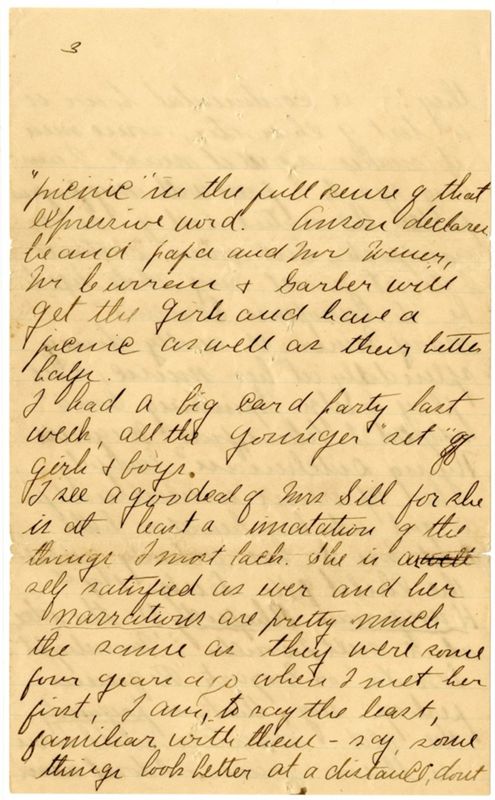 3
"picnic" in the full sense of that
expressive word. Anson declares
he and papa and Mr Wener,
Mr Currens & Garber will
get the girls and have a
picnic as well as their better
halfs.
I had a big card party last
week, all the younger "set" of
girls & boys.
I see a good deal of Mrs Sill for she
is at least a imatation of the
things I most lack. She is as
self satisfied as ever and her
narrations are pretty much
the same as they were some
four years ago when I met her
first, I am, to say the least,
familiar with them – say, some
things look better at a distance, dont